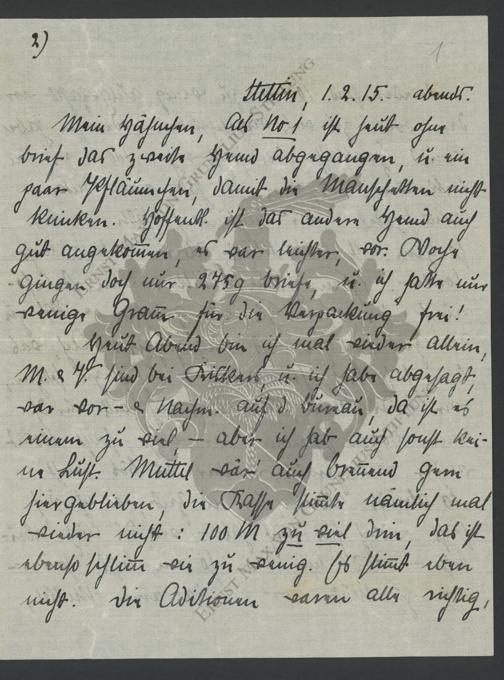 2)
1
Stettin, 1.2.15. abends.
Mein Häschen, Als No 1 ist heut ohne
brief das zweite Hemd abgegangen, u. ein
paar Pfläumchen, damit die Manschetten nicht
knicken. Hoffentl. ist das andere Hemd auch
gut angekom̅en, es war leichter, vor. Woche
gingen doch nur 275g briefe, u. ich hatte nur
wenige Gram̅ für die Verpackung frei!
Heut Abend bin ich mal wieder allein,
M. & V. sind bei u. ich habe abgesagt,
war vor- & Nachm. auf d. bureau, da ist es
einem zu viel, – aber ich hab auch sonst kei-
ne Lust. Muttil wär auch bren̅end gern
hiergeblieben, die Kasse stim̅te nämlich mal
wieder nicht: 100 M zu viel drin, das ist
ebenso schlim̅ wie zu wenig. Es stim̅t eben
nicht. Die Aditionen waren alle richtig,
ERNST MAX